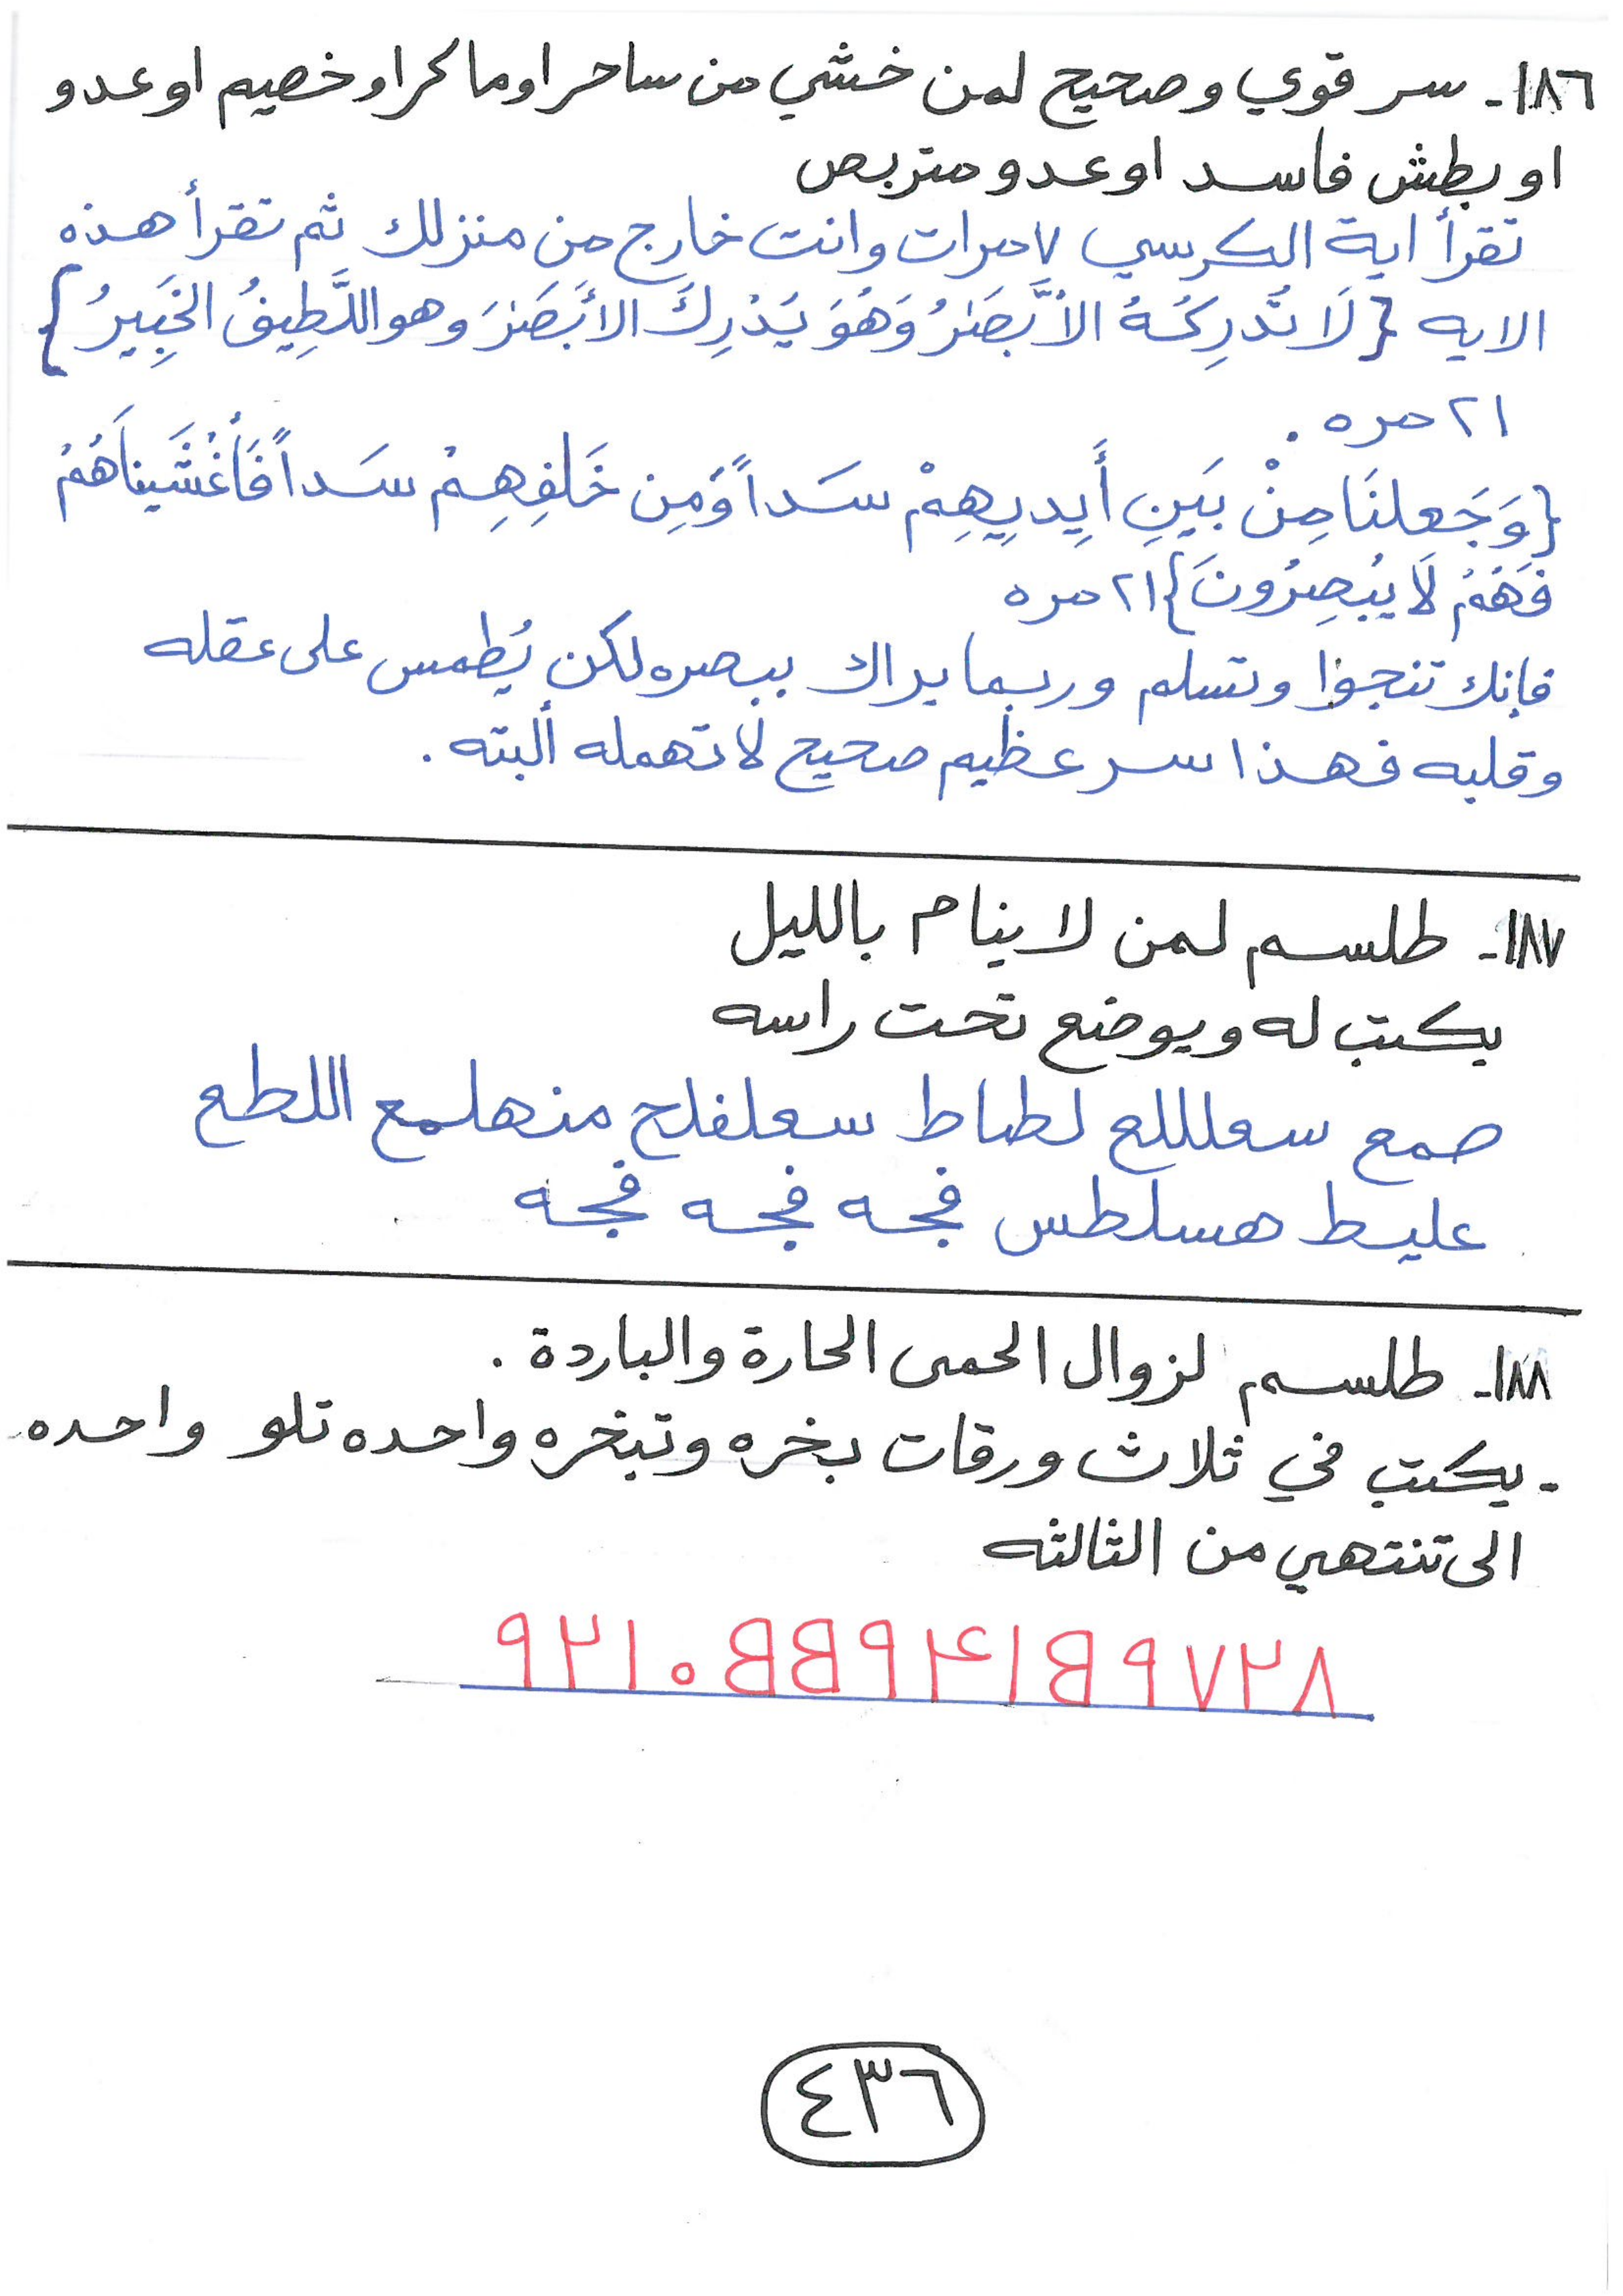 ١٨٦- سر قوي وصحيح لمن خشي من ساحر او ماكر او خصيم او عدو
او بطش فاسد او عدو متربص
تقرأ اية الكرسي ٧ مرات وانت خارج من منزلك ثم تقرأ هذه
الايه {لَا تُدرِكُهُ الأَبْصَٰرُ وَهُوَ يُدْرِكُ الأَبْصَٰرَ وهو اللَّطِيفُ الخَبِيرُ}
٢١ مره .
{وَجَعلنَا مِنْ بَينِ أَيدِيهِمْ سَداً وَمِن خَلفِهِمْ سَداً فَأَغْشَيناَهُمْ
فَهُمْ لَا يُبصِرُونَ} ٢١ مره
فإنك تنجوا وتسلم وربما يراك ببصره لكن يُطمس على عقله
وقلبه فهذا سر عظيم صحيح لا تهمله ألبته .
١٨٧- طلسم لمن لا ينام بالليل
يكتب له ويوضع تحت راسه
صمع سعلللع لطاط سعلفلح منهلمع اللطع
عليط هسلطس فجه فجه فجه
١٨٨- طلسم لزوال الحمى الحارة والباردة .
- يكتب في ثلاث ورقات بخره وتبخره واحده تلو واحده
الى تنتهي من الثالثه
٩٢١٠BB٩٤١B٩٧٢٨
٤٣٦